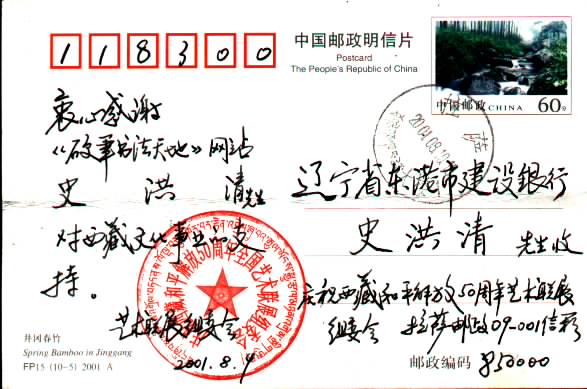 118300
中国邮政明信片
Postcard
The People's Republic of China
中国邮政 CHINA 60分
衷心感谢
《硬笔书法天地》网站
史洪清先生
对西藏文化事业的支
持。
艺术联展组委会
2001.8.9
辽宁省东港市建设银行
史洪清 先生收
庆祝西藏和平解放50周年艺术联展
组委会 拉萨邮政09-001信箱
邮政编码 850000
井冈春竹
Spring Bamboo in Jinggang
FP15 (10-5) 2001 A